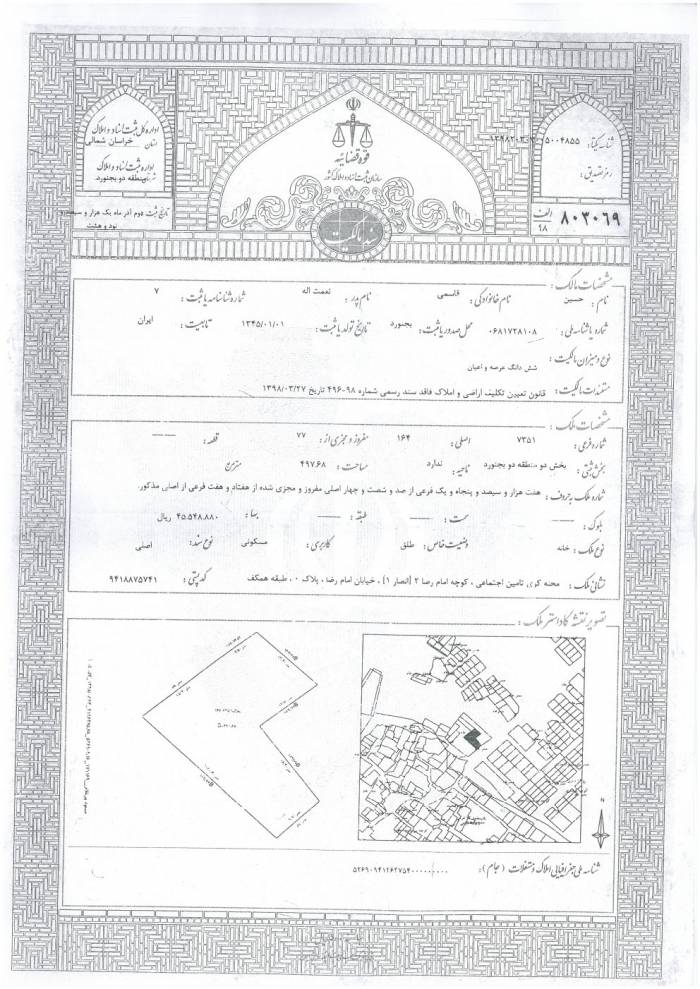 اداره کل ثبت اسناد و املاک
استان خراسان شمالی
اداره ثبت اسناد و املاک
منطقه دو بجنورد
تاریخ ثبت دوم آذر ماه یک هزار و سیصد و
نود و هشت
قوه قضائیه
سازمان ثبت اسناد و املاک کشور
سند مالکیت
شناسه یکتا:
رمز تصدیق:
الف
۹۸
۸۰۳۰۶۹
مشخصات مالک:
نام: حسین نام خانوادگی: قاسمی نام پدر: نعمت اله شماره شناسنامه یا ثبت: ۷
شماره یا شناسه ملی: ۰۶۸۱۷۲۸۱۰۸ محل صدور یا ثبت: بجنورد تاریخ تولد یا ثبت: ۱۳۴۵/۰۱/۰۱ تابعیت: ایران
نوع و میزان مالکیت: شش دانگ عرصه و اعیان
مستندات مالکیت: قانون تعیین تکلیف اراضی و املاک فاقد سند رسمی شماره ۹۸-۴۹۶ تاریخ ۱۳۹۸/۰۳/۲۷
مشخصات ملک:
شماره فرعی: ۷۳۵۱ اصلی: ۱۶۴ مفروز و مجزی از: ۷۷ قطعه: ——
بخش ثبتی: بخش دو منطقه دو بجنورد ناحیه: ندارد مساحت: ۴۹۷.۶۸ مترمربع
شماره ملک به حروف: هفت هزار و سیصد و پنجاه و یک فرعی از صد و شصت و چهار اصلی مفروز و مجزی شده از هفتاد و هفت فرعی از اصلی مذکور.
بلوک: —— سمت: —— طبقه: —— بها: ۴۵.۵۴۸.۸۸۰ ریال
نوع ملک: خانه وضعیت خاص: طلق کاربری: مسکونی نوع سند: اصلی
نشانی ملک: محله کوی تامین اجتماعی ، کوچه امام رضا ۲ [انصار ۱] ، خیابان امام رضا ، پلاک ۰ ، طبقه همکف کدپستی: ۹۴۱۸۸۷۵۷۴۱
تصویر نقشه کاداستر ملک:
N
شناسه ملی جغرافیایی املاک و مستغلات (جام):